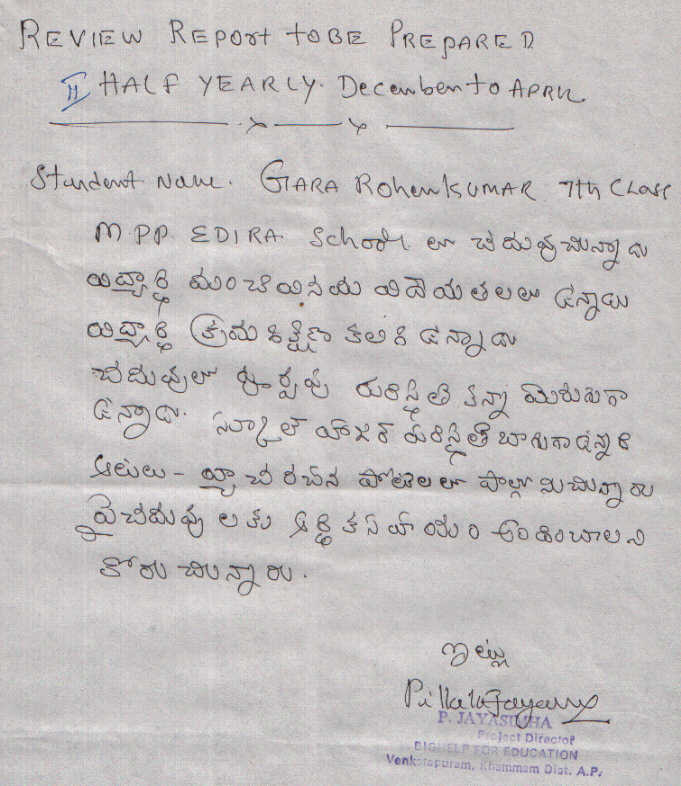 REVIEW REPORT TO BE PREPARED
II HALF YEARLY. December to APRIL
Student Name. GARA Rohenkumar 7th Class
M.PP. EDIRA. School లో చదువుచున్నాడు
విద్యార్థి మంచి వినయ విదేయతలలు ఉన్నాయి
విద్యార్థి క్రమశిక్షణ కలిగి ఉన్నాడు
చదువులో పూర్వపు పరిస్థితి కన్నా మెరుగుగా
ఉన్నాడు. స్కూల్ హాజర్ పరిస్థితి బాగుగా ఉన్నది
ఆటలు - వ్యాచరచన పోటిలలో పాల్గొనుచున్నారు
పైచదువు లకు ఆర్థికసహాయం అందించాలని
కోరు చున్నారు.
ఇట్లు
P. JAYASIMHA
Project Director
BIGHELP FOR EDUCATION
Venkatapuram, Khammam Dist. A.P.